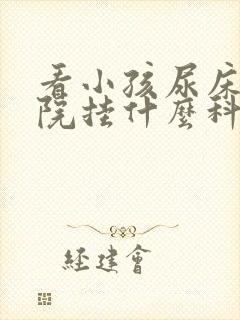 看小孩尿床
院挂什麼科
经建會